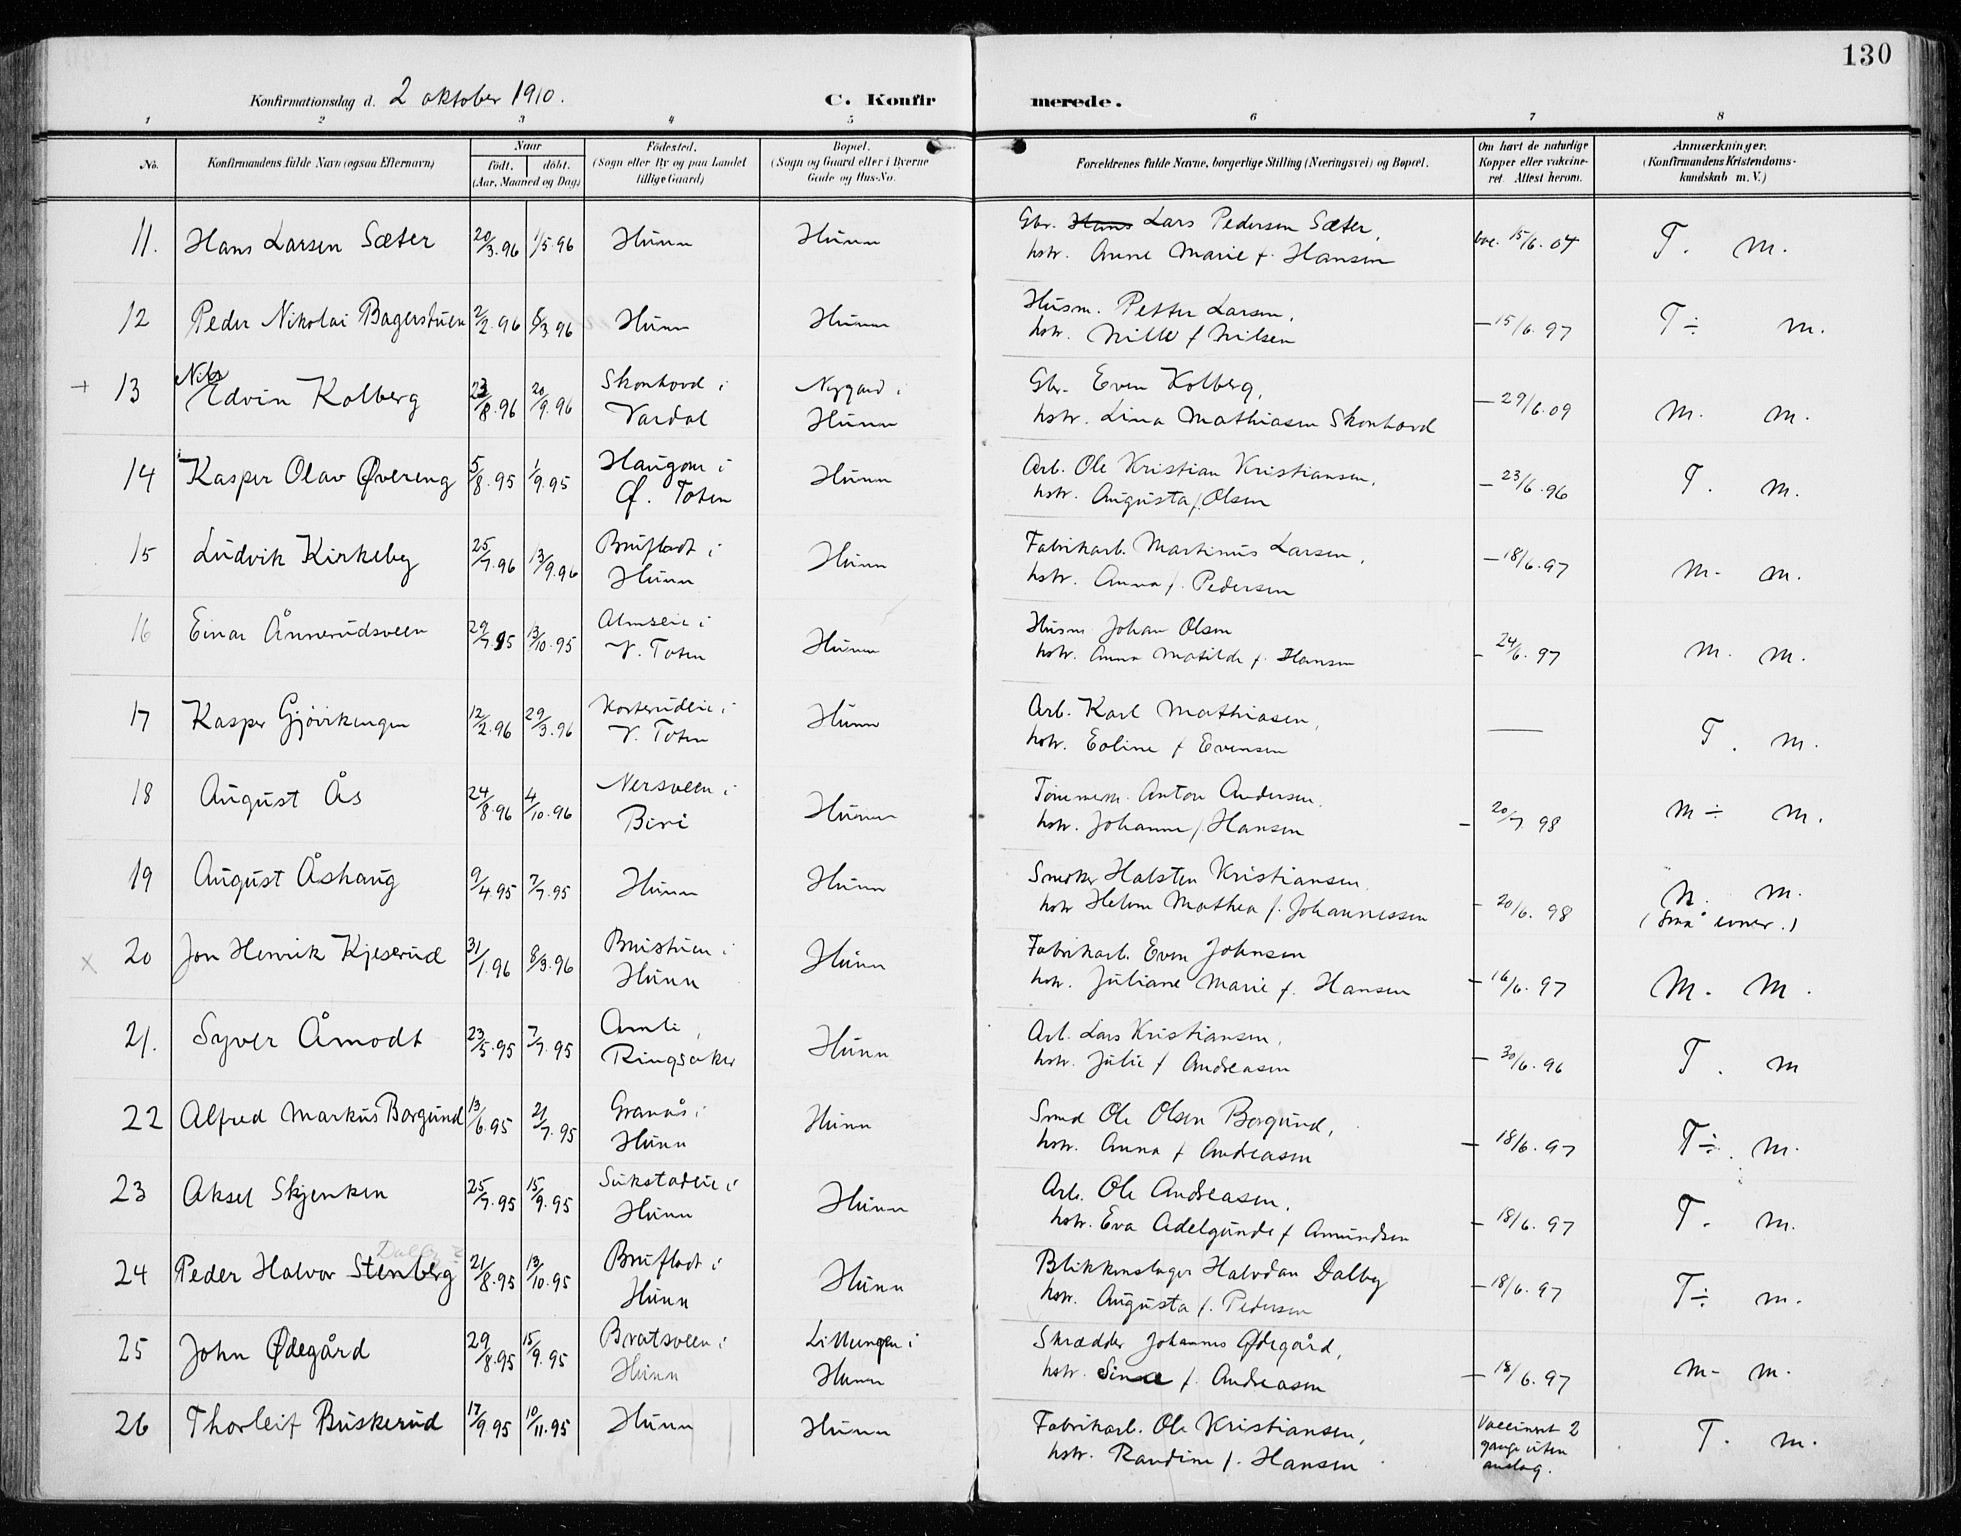 130
Konfirmationsdag d. 2 oktober 1910. C. Konfirmerede.
1 2 3 4 5 6 7 8
No. Konfirmandens fulde Navn (ogsaa Efternavn) Naar født. døbt. (Aar, Maaned og Dag) Fødested. (Sogn eller By og paa Landet tillige Gaard) Bopæl. (Sogn og Gaard eller i Byerne Gade og Hus-No. Forældrenes fulde Navne, borgerlige Stilling (Næringsvei) og Bopæl. Om havt de naturlige Kopper eller vakcineret. Attest herom. Anmærkninger. (Konfirmandens Kristendomskundskab m. V.)
11. Hans Larsen Sæter 20/3.96 1/5.96 Hunn Hunn Gbr. Hans Lars Pedersen Sæter, vac. 15/6.04 T. m.
hstr. Anne Marie f. Hansen
12 Peder Nikolai Bagerstuen 2/2.96 8/3 96 Hunn Hunn Husm. Petter Larsen, — 15/6.97 T ÷ m.
hstr. Nille f Nilsen
+ 13 Nils Edvin Kolberg 23/8.96 20/9.96 Skonhovd i Nygard i Gbr. Even Kolberg, — 29/6.09 m. m.
Vardal Hunn hstr. Lina Mathiasen Skonhovd
14 Kasper Olav Øvereng 5/8.95 1/9.95 Haugom i Hunn Arb. Ole Kristian Kristiansen, — 23/6.96 T. m.
Ø. Toten hstr. Augusta f. Olsen
15 Ludvik Kirkeby 25/7.96 13/9.96 Brufladt i Hunn Fabrikarb. Martinus Larsen, — 18/6.97 m- m.
Hunn hstr. Anna f. Pedersen
16 Einar Ånnerudsveen 29/7.95 13/10.95 Almseie i Hunn Husm Johan Olsen — 24/6.97 m. m.
V. Toten hstr. Anna Matilde f. Hansen
17 Kasper Gjøvikengen 12/2.96 29/3.96 Korterudeie i Hunn Arb. Karl Mathiasen, — T. m.
V. Toten hstr. Eoline f Evensen
18 August Ås 24/8.96 4/10.96 Nersveen i Hunn Tømmerm. Anton Andersen. — 20/7 98 m ÷ m.
Biri hstr. Johanne f. Hansen
19 August Åshaug 9/4.95 7/7.95 Hunn Hunn Snedker Halsten Kristiansen. — 20/6.98 N. m.
hstr Helene Mathea f. Johannessen (små evner.)
x 20 Jon Henrik Kjeserud 31/1.96 8/3.96 Brustuen i Hunn Fabrikarb. Even Johnsen — 16/6.97 M. M.
Hunn hstr. Juliane Marie f. Hansen
21. Syver Åmodt 23/5.95 7/7.95 Amli, Hunn Arb. Lars Kristiansen, — 30/6.96 T. m
Ringsaker hstr. Julie f Andreasen
22 Alfred Markus Borgund 13/6.95 21/7.95 Granås i Hunn Smed Ole Olsen Borgund, — 18/6.97 T ÷. m.
Hunn hstr. Anna f Andreasen
23 Aksel Skjenken 25/7.95 15/9.95 Sukstadeie i Hunn Arb. Ole Andreasen, — 18/6.97 T. m.
Hunn hstr. Eva Adelgunde f Amundsen
Dalby
24 Peder Halvor Stenberg 21/8.95 13/10.95 Brufladt i Hunn Blikkenslager Halvdan Dalby — 18/6.97 T ÷ m.
Hunn hstr. Augusta f. Pedersen
25 John Ødegård 29/8.95 15/9.95 Bratsveen i Litlengen i Skrædder Johannes Ødegård, — 18/6.97 m- m.
Hunn Hunn hstr. Sina f. Andreasen
26 Thorleif Buskerud 17/9.95 10/11.95 Hunn Hunn Fabrikarb. Ole Kristiansen, Vaccinert 2 T. m.
hstr. Randine f. Hansen gange uten
anslag.